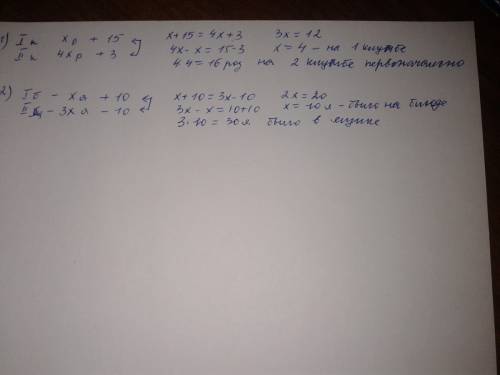 1) I к xр + 15 x+15=4x+3 3x=12
II к 4xр + 3 4x-x=15-3 x=4 - на 1 клумбе
4·4=16 роз на 2 клумбе первоначально
2) I б - xя + 10 x+10=3x-10 2x=20
II я - 3xя - 10 3x-x=10+10 x=10я - было на блюде
3·10=30я было в ящике